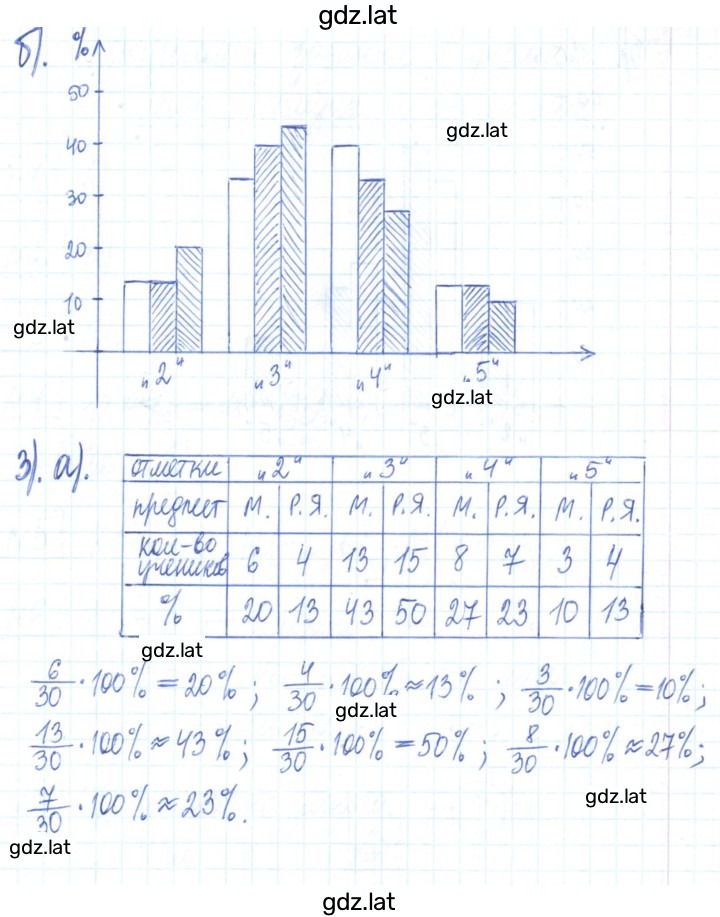 gdz.lat
б). %
50
40
gdz.lat
30
20
10
gdz.lat
„2“ „3“ „4“ „5“
gdz.lat
3). а).
отметки „2“ „3“ „4“ „5“
предмет М. Р.Я. М. Р.Я. М. Р.Я. М. Р.Я.
кол-во
учеников 6 4 13 15 8 7 3 4
% 20 13 43 50 27 23 10 13
gdz.lat
6/30 · 100% = 20% ; 4/30 · 100% ≈ 13% ; 3/30 · 100% = 10% ;
gdz.lat
13/30 · 100% ≈ 43% ; 15/30 · 100% = 50% ; 8/30 · 100% ≈ 27% ;
7/30 · 100% ≈ 23%.
gdz.lat
gdz.lat
gdz.lat